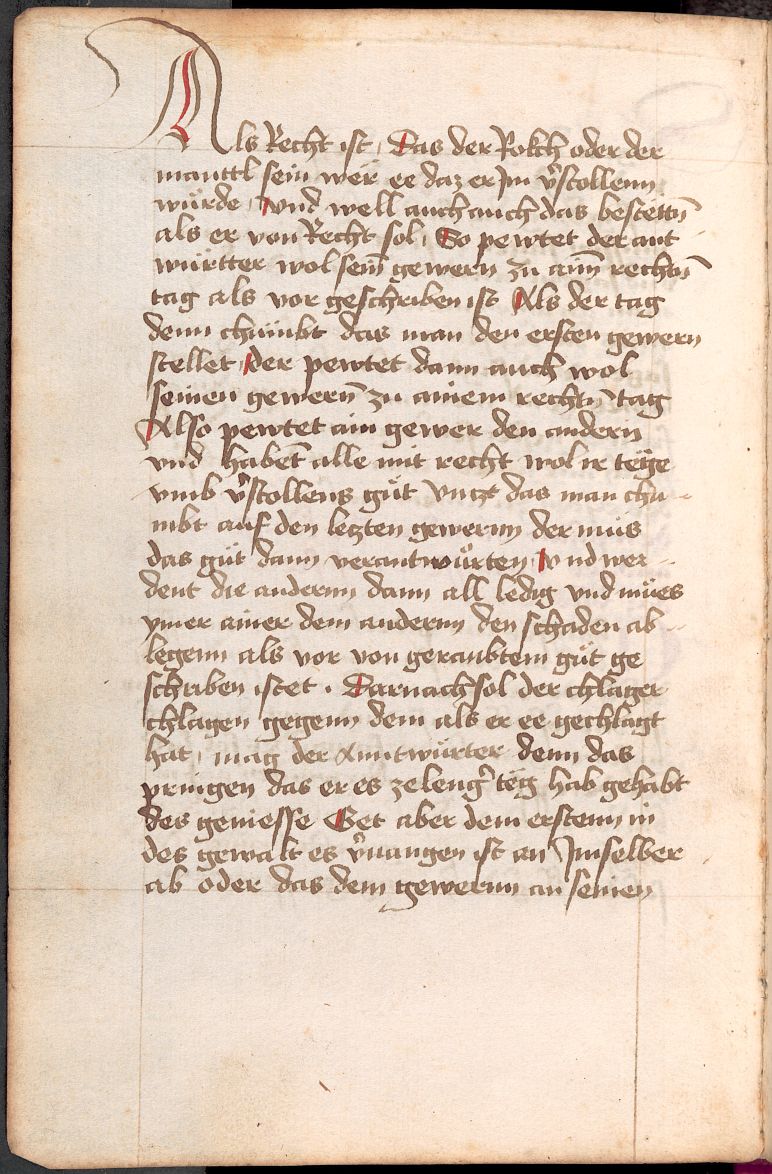 Als Recht ist , Das der Rokch oder der
manttl sein wër ee daz er Im v̾stollenn
würde , vnd well auch auch das bestëttn̄
als er von Recht sol , So pewtet der ant
württer wol sein̄ gewern zu ain̄ rechtn̄
tag als vor geschriben ist Als der tag
denn chümbt das man den ersten gewern
stellet , der pewtet dann auch wol
seinen gewern̄ zu ainem rechtn̄ tag
Also pewtet ain gewer den andern
vnd habent̄ alle mit recht wol ir tëge
vmb v̾stollens gůt Vnczt das man chu
mbt auf den leczten gewernn der můs
das gůt dann verantwürten , vnd wer
dent die andernn dann all ledig vnd můes
ymer ainer dem andernn den schaden ab
legenn als vor von geraubtem gůt ge
schriben istet . Darnach sol der chlager
chlagen gegenn dem als er ee gechlagt
hat , mag der Anntwürter denn das
pringen das er es ze leng̾ tëg hab gehabt
des geniesse Get aber dem erstenn in
des gewalt es v̾uangen ist an Imselber
ab oder das dem gewernn an seinen